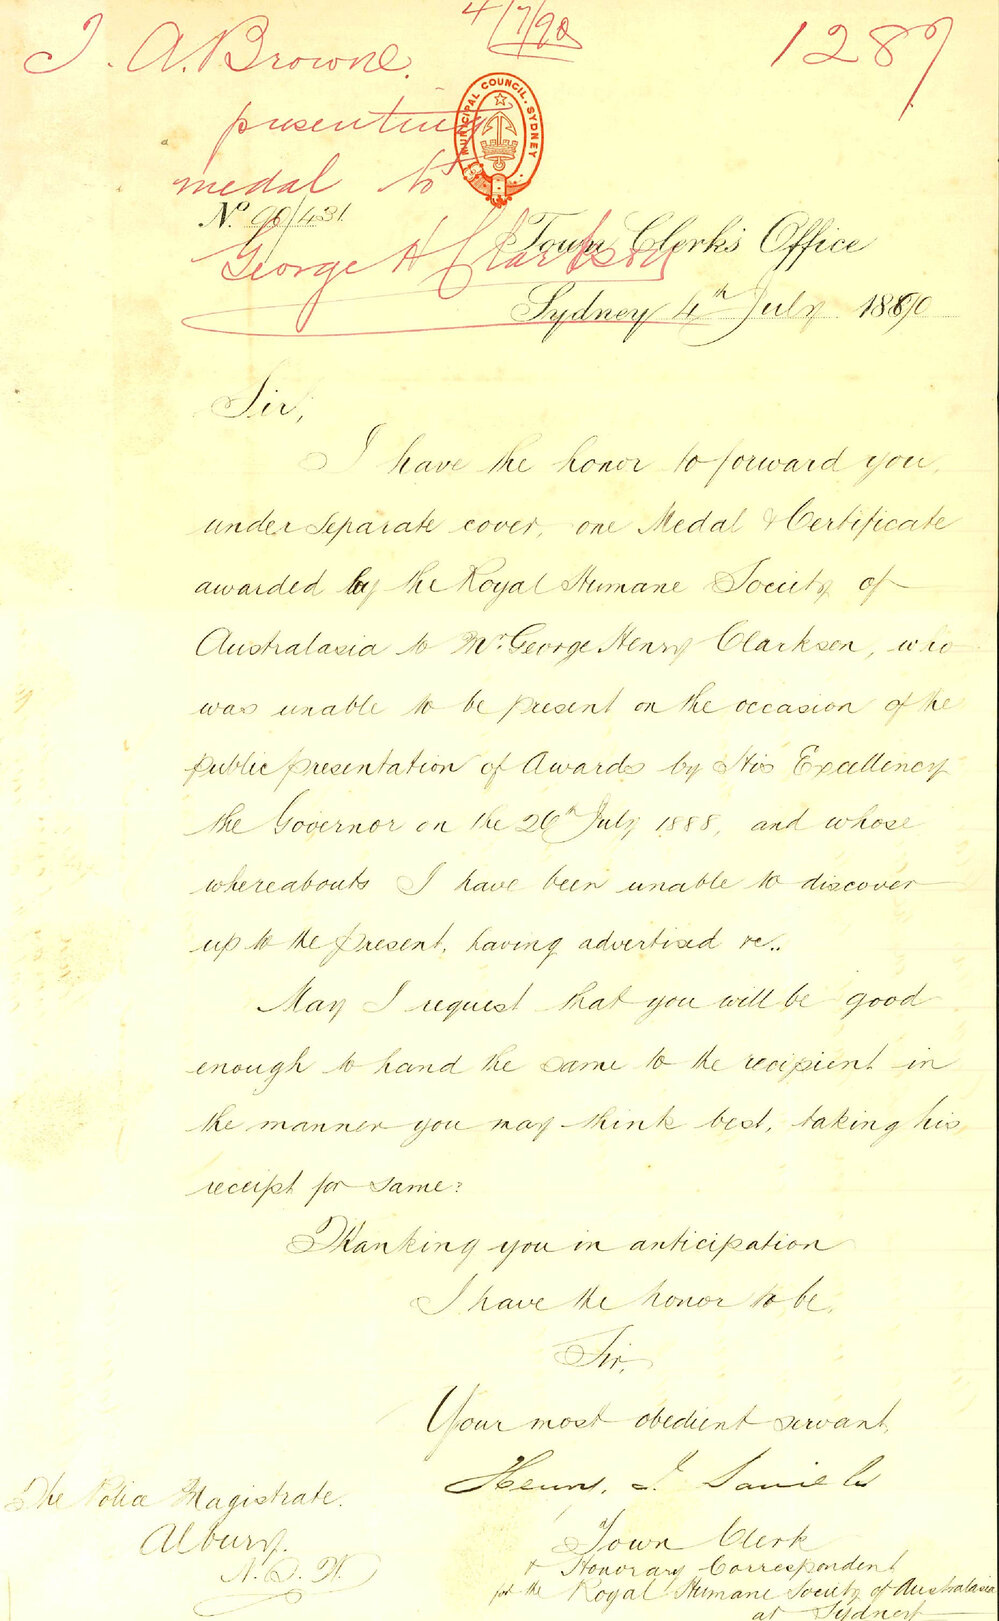 T. A. Browne.
4/7/90
1287
presenting
medal to
George H Clarkson
MUNICIPAL COUNCIL. SYDNEY
No. 90/431.
Town Clerk's Office
Sydney 4th July 1890
Sir,
I have the honor to forward you,
under separate cover, one Medal & Certificate
awarded by the Royal Humane Society of
Australasia to Mr. George Henry Clarkson, who
was unable to be present on the occasion of the
public presentation of Awards by His Excellency
the Governor on the 26th July 1888, and whose
whereabouts I have been unable to discover
up to the present, having advertised &c..
May I request that you will be good
enough to hand the same to the recipient in
the manner you may think best, taking his
receipt for same?
Thanking you in anticipation
I have the honor to be,
Sir,
Your most obedient servant,
Henry J. Daniels
Town Clerk
& Honorary Correspondent
for the Royal Humane Society of Australasia
at Sydney
The Police Magistrate.
Albury.
N. S. W.